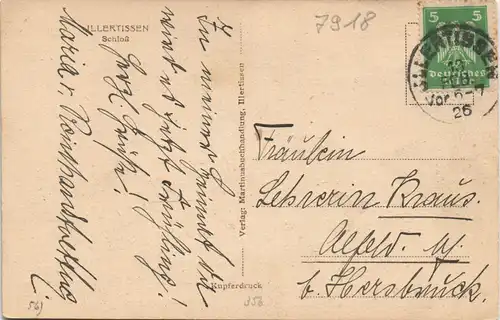 ILLERTISSEN
Schloß
In meiner Heimat
wird es jetzt Frühling!
Herzl. Grüße!
Maria
Verlag: Martinusbuchhandlung, Illertissen
Kupferdruck
7918
5 5
Deutsches
Reich
ILLERTISSEN
Vor. 6-7
26
Fräulein
Lehrerin Kraus.
Alfeld
b. Hersbruck.